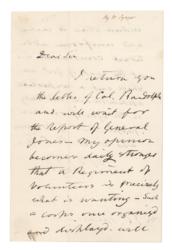 Dear Sir
I return you
the letter of Col. Randolph
and will wait for
the Report of General
Jones – My opinion
becomes daily stronger
that a Regiment of
Volunteers is precisely
what is wanting – Such
a corps once organized
and displayed will